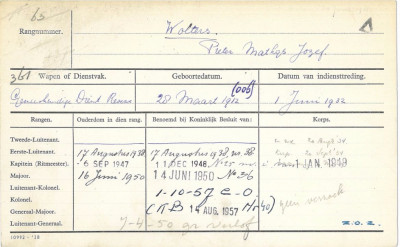 63
Rangnummer.
Wolters,
Pieter Mathijs Jozef.
361 Wapen of Dienstvak.
Geboortedatum.
Datum van indiensttreding.
(006)
Geneeskundige Dienst Reserve
20 Maart 1912
1 Juni 1932
Rangen.
Ouderdom in dien rang.
Benoemd bij Koninklijk Besluit van:
Korps.
Tweede-Luitenant.
Eerste-Luitenant.
17 Augustus 1938,
17 Augustus 1938, no. 38
Kapitein (Ritmeester).
6 SEP 1947
11 DEC 1948 No 25
1 JAN 1949
Majoor.
16 Juni 1950
14 JUNI 1950 No 36
Luitenant-Kolonel.
1-10-57 E-O
Kolonel.
Generaal-Majoor.
(KB 14 AUG. 1957 Nr 40)
geen verzoek
Luitenant-Generaal.
7-4-50 gr verlof
R.O.Z.
10992 - '38